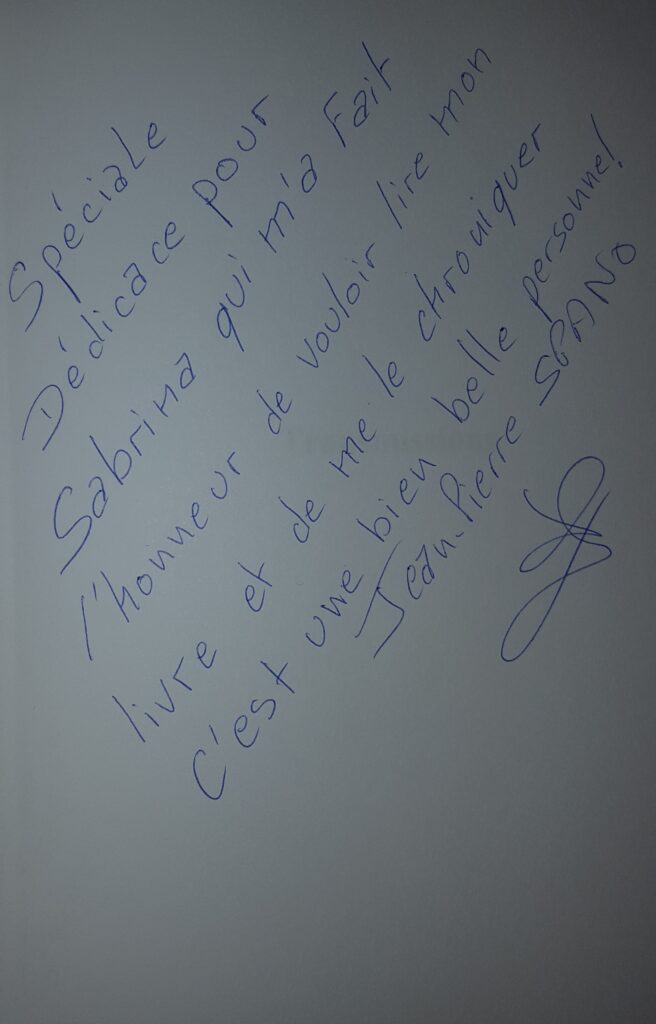 Spéciale
Dédicace pour
Sabrina qui m'a Fait
l'honneur de vouloir lire mon
livre et de me le chroniquer
C'est une bien belle personne!
Jean-Pierre SPANO